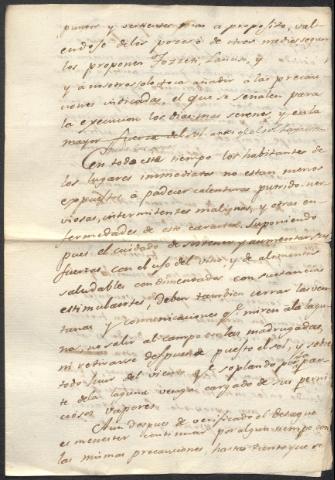 puntos y vertientes mas a proposito, val-
endose de los pocesó de otros medios segun
los proponen Fozieti, Lancisi, y
y á nosotros solo toca añadir á las precau-
ciones indicadas, el que se señalen para
la execucion los dias mas serenos, y en la
mayor fuerza del sol
En todo este tiempo los habitantes de
los lugares inmediatos no estan menos
expuestos á padecer calenturas putrido-ner-
viosas, intermitentes malignas, y otras en-
fermedades de este caracter. Suponiendo
pues el cuidado de sostener y aumentar sus
fuerzas con el uso del vino, y de alimentos
saludables condimentados con sustancias
estimulantes, deben tambien cerrar las ven-
tanas y comunicaciones q.e miren á la lagu-
na, no salir al campo en las madrugadas,
ni retirarse despues de puesto el sol, y sobre
todo huir del viento q.e soplando por par-
te de la laguna venga cargado de sus perni-
ciosos vapores.
Aun despues de verificado el desague
es menester continuar por algun tiempo con
las mismas precauciones, hasta tanto que se